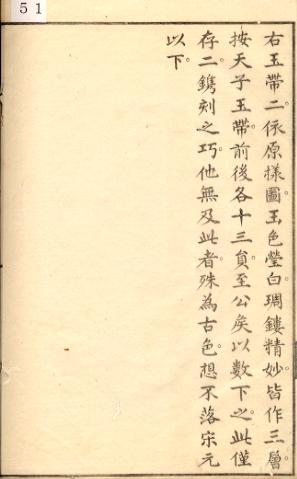 51
右玉帶二依原樣圖玉色瑩白琱鏤精妙皆作三層
按天子玉帶前後各十三負至公矦以數下之此僅
存二鐫刻之巧他無及此者殊為古色想不落宋元
以下